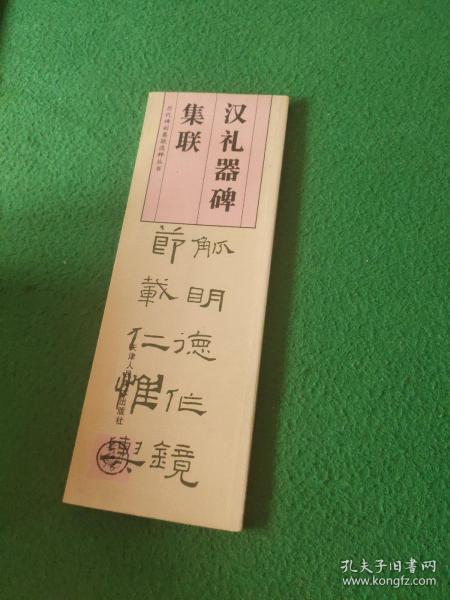 汉礼器碑
集联
历代碑刻集联选粹丛书
觚明德作鏡
節載仁惟輿
天津人民
出版社
孔夫子旧书网
www.kongfz.com